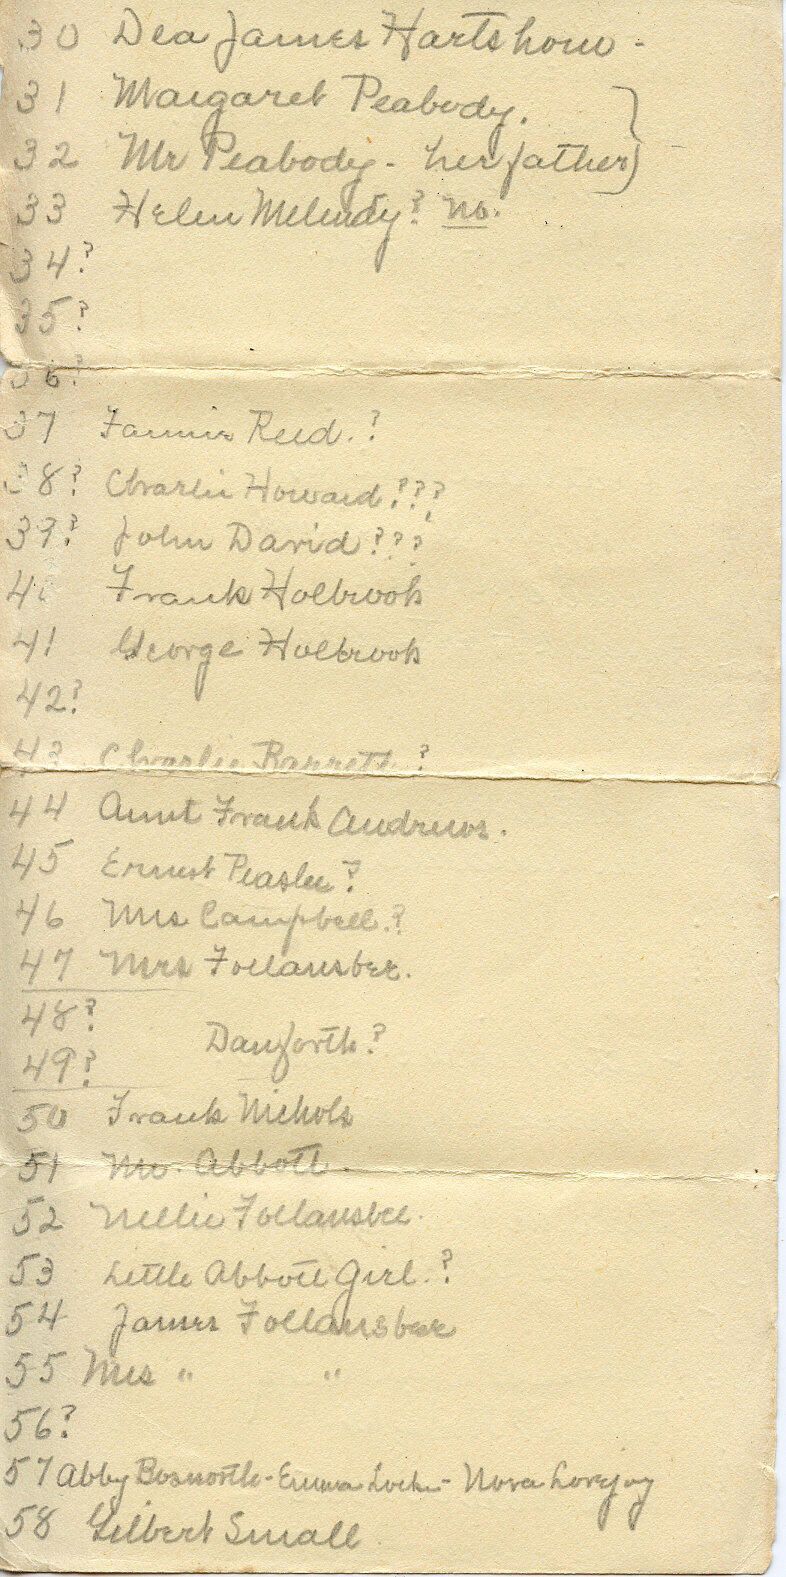 30 Dea James Hartshorn -
31 Margaret Peabody.
32 Mr Peabody - her father
33 Helen Melendy? no.
34?
35?
36?
37 Fannie Reed.?
38? Charlie Howard???
39? John David???
40 Frank Holbrook
41 George Holbrook
42?
43 Charlie Barrett ?
44 Aunt Frank Andrews.
45 Ernest Peaslee?
46 Mrs Campbell.?
47 Mrs Follansbee.
48?
Danforth?
49?
50 Frank Nichols
51 Mr. Abbott
52 Nellie Follansbee.
53 Little Abbott Girl.?
54 James Follansbee
55 Mrs " "
56?
57 Abby Bosworth - Emma Locke - Nora Lovejoy
58 Gilbert Small